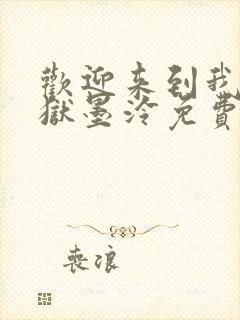 歡迎来到我
獄墨泠免費
喪浪